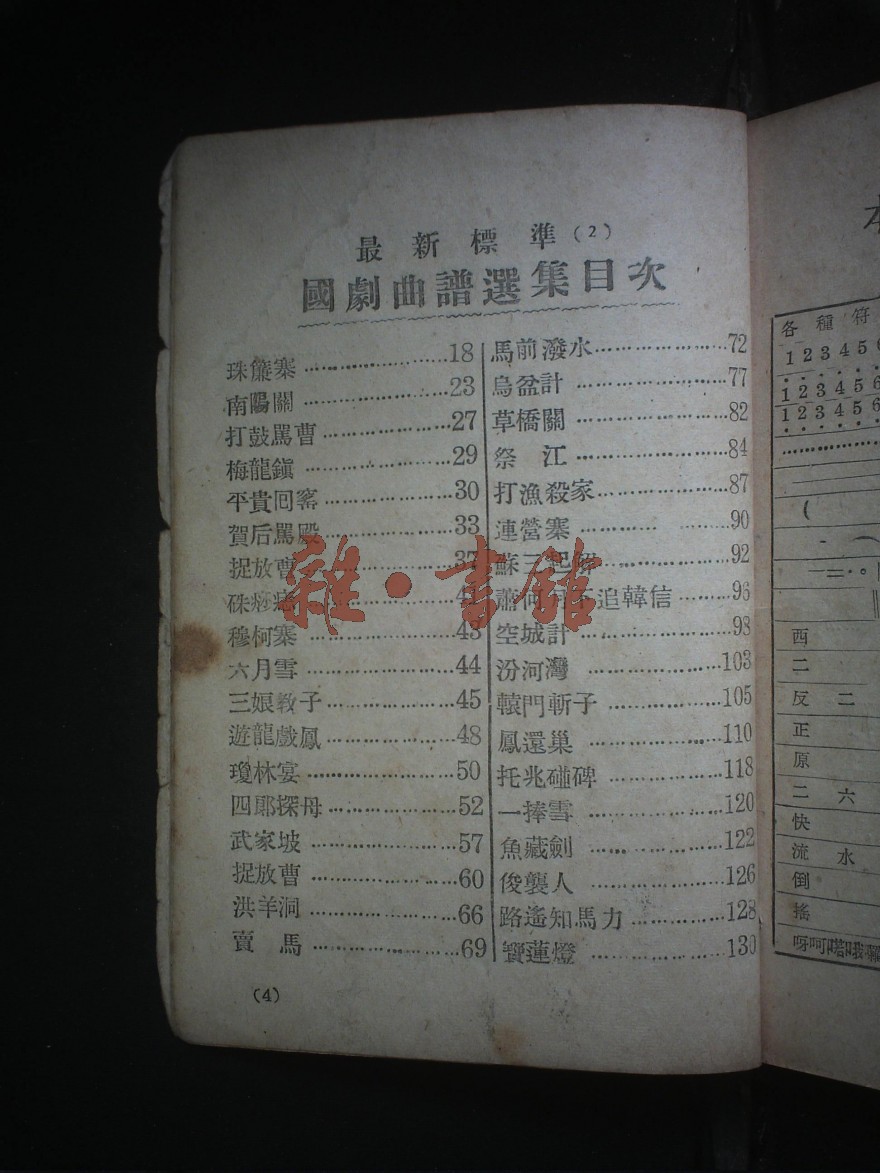 最新標準(2)
國劇曲譜選集目次
珠簾寨……………………18
南陽關……………………23
打鼓罵曹…………………27
梅龍鎭……………………29
平貴回窰…………………30
賀后罵殿…………………33
捉放曹……………………37
硃痧痣
穆柯寨……………………43
六月雪……………………44
三娘敎子…………………45
遊龍戲鳳…………………48
瓊林宴……………………50
四郞探母…………………52
武家坡……………………57
捉放曹……………………60
洪羊洞……………………66
賣馬………………………69
馬前潑水…………………72
烏盆計……………………77
草橋關……………………82
祭江………………………84
打漁殺家…………………87
連營寨……………………90
蘇三起解…………………92
蕭何月下追韓信…………96
空城計……………………98
汾河灣……………………103
轅門斬子…………………105
鳳還巢……………………110
托兆碰碑…………………118
一捧雪……………………120
魚藏劍……………………122
俊襲人……………………126
路遙知馬力………………128
寶蓮燈……………………130
(4)
雜·書館
本
各種符
1 2 3 4 5 6
1 2 3 4 5 6
1 2 3 4 5 6
西
二
反二
正
原
二六
快
流水
倒
搖
呀呵嗒哦囉